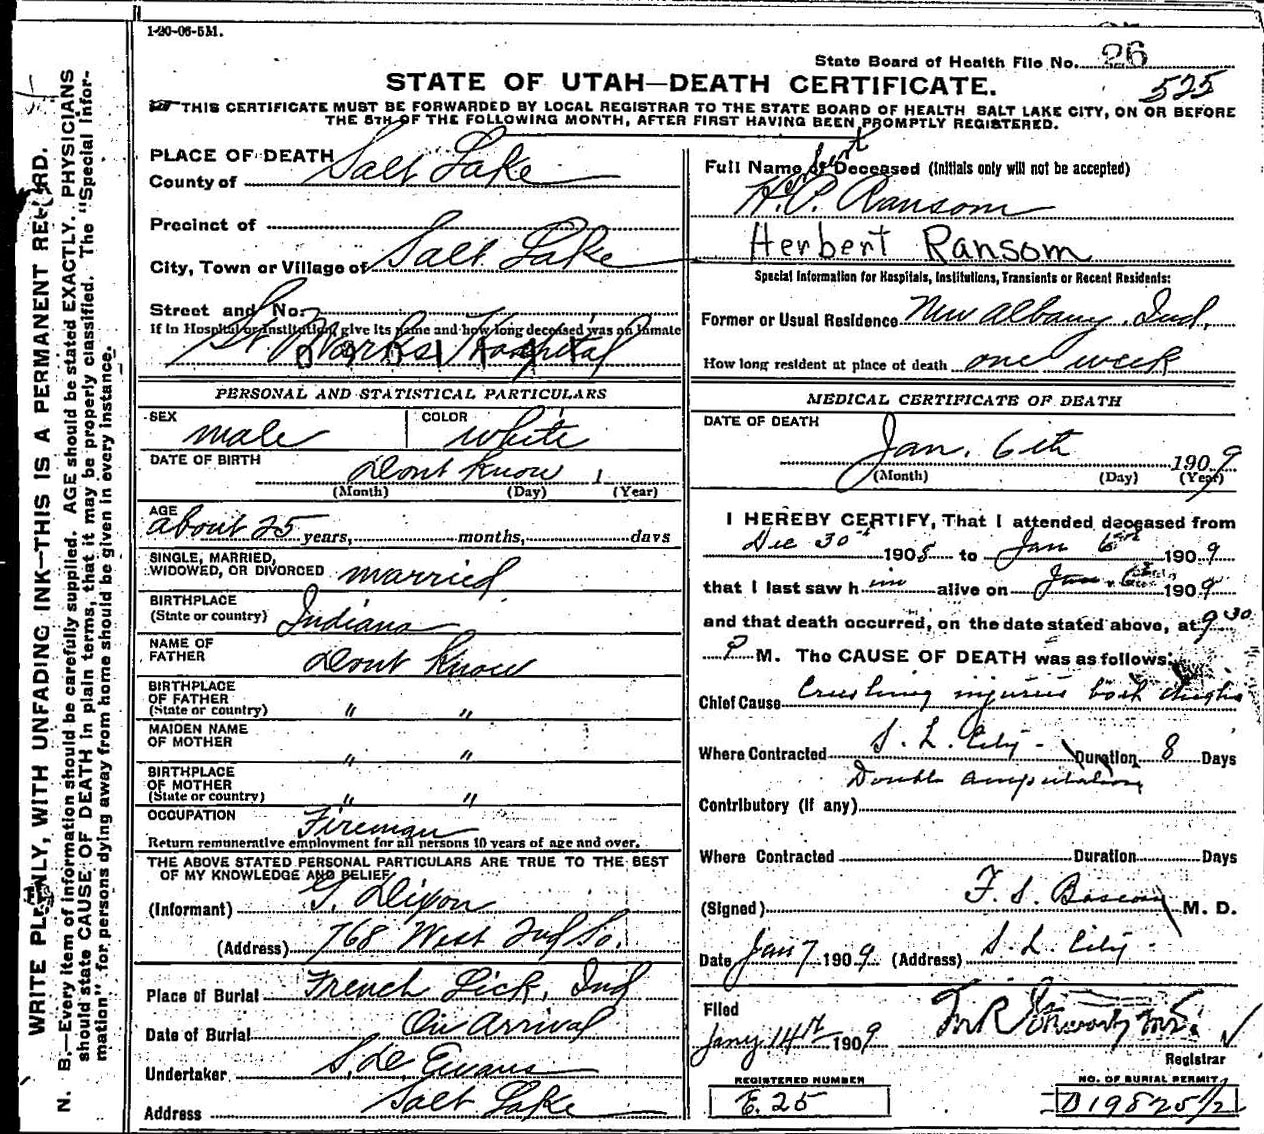 1-20-06-5M.
State Board of Health File No. 26
525
STATE OF UTAH—DEATH CERTIFICATE.
THIS CERTIFICATE MUST BE FORWARDED BY LOCAL REGISTRAR TO THE STATE BOARD OF HEALTH SALT LAKE CITY, ON OR BEFORE
THE 5TH OF THE FOLLOWING MONTH, AFTER FIRST HAVING BEEN PROMPTLY REGISTERED.
WRITE PLAINLY, WITH UNFADING INK—THIS IS A PERMANENT RECORD.
N. B.—Every item of information should be carefully supplied. AGE should be stated EXACTLY. PHYSICIANS
should state CAUSE OF DEATH in plain terms, that it may be properly classified. The "Special Infor-
mation" for persons dying away from home should be given in every instance.
PLACE OF DEATH
County of Salt Lake
Precinct of
City, Town or Village of Salt Lake
Street and No.
If in Hospital or Institution, give its name and how long deceased was an inmate
St Marks Hospital
PERSONAL AND STATISTICAL PARTICULARS
SEX male COLOR white
DATE OF BIRTH Dont Know 1
(Month) (Day) (Year)
AGE
about 25 years, months, days
SINGLE, MARRIED,
WIDOWED, OR DIVORCED married
BIRTHPLACE
(State or country) Indiana
NAME OF
FATHER Dont Know
BIRTHPLACE
OF FATHER
(State or country) " "
MAIDEN NAME
OF MOTHER " "
BIRTHPLACE
OF MOTHER
(State or country) " "
OCCUPATION Fireman
Return remunerative employment for all persons 10 years of age and over.
THE ABOVE STATED PERSONAL PARTICULARS ARE TRUE TO THE BEST
OF MY KNOWLEDGE AND BELIEF
(Informant) G. Dixon
(Address) 768 West 2nd So.
Place of Burial French Lick, Ind
Date of Burial On Arrival
Undertaker Evans
Address Salt Lake
Full Name of Deceased (Initials only will not be accepted)
H. P. Ransom
Herbert Ransom
Special Information for Hospitals, Institutions, Transients or Recent Residents:
Former or Usual Residence New Albany, Ind.
How long resident at place of death one week
MEDICAL CERTIFICATE OF DEATH
DATE OF DEATH
Jan. 6th 1909
(Month) (Day) (Year)
I HEREBY CERTIFY, That I attended deceased from
Dec 30th 1908 to Jan 6th 1909
that I last saw him alive on Jan 6th 1909
and that death occurred, on the date stated above, at 9 30
P M. The CAUSE OF DEATH was as follows:
Chief Cause Crushing injuries both thighs
Where Contracted S. L. City - Duration 8 Days
Double amputation
Contributory (if any)
Where Contracted Duration Days
(Signed) F. S. Bascom M. D.
Date Jan 7 1909 (Address) S. L. City -
Filed
Jany 14th 1909
Registrar
REGISTERED NUMBER
E. 25
NO. OF BURIAL PERMIT
D 19825/2